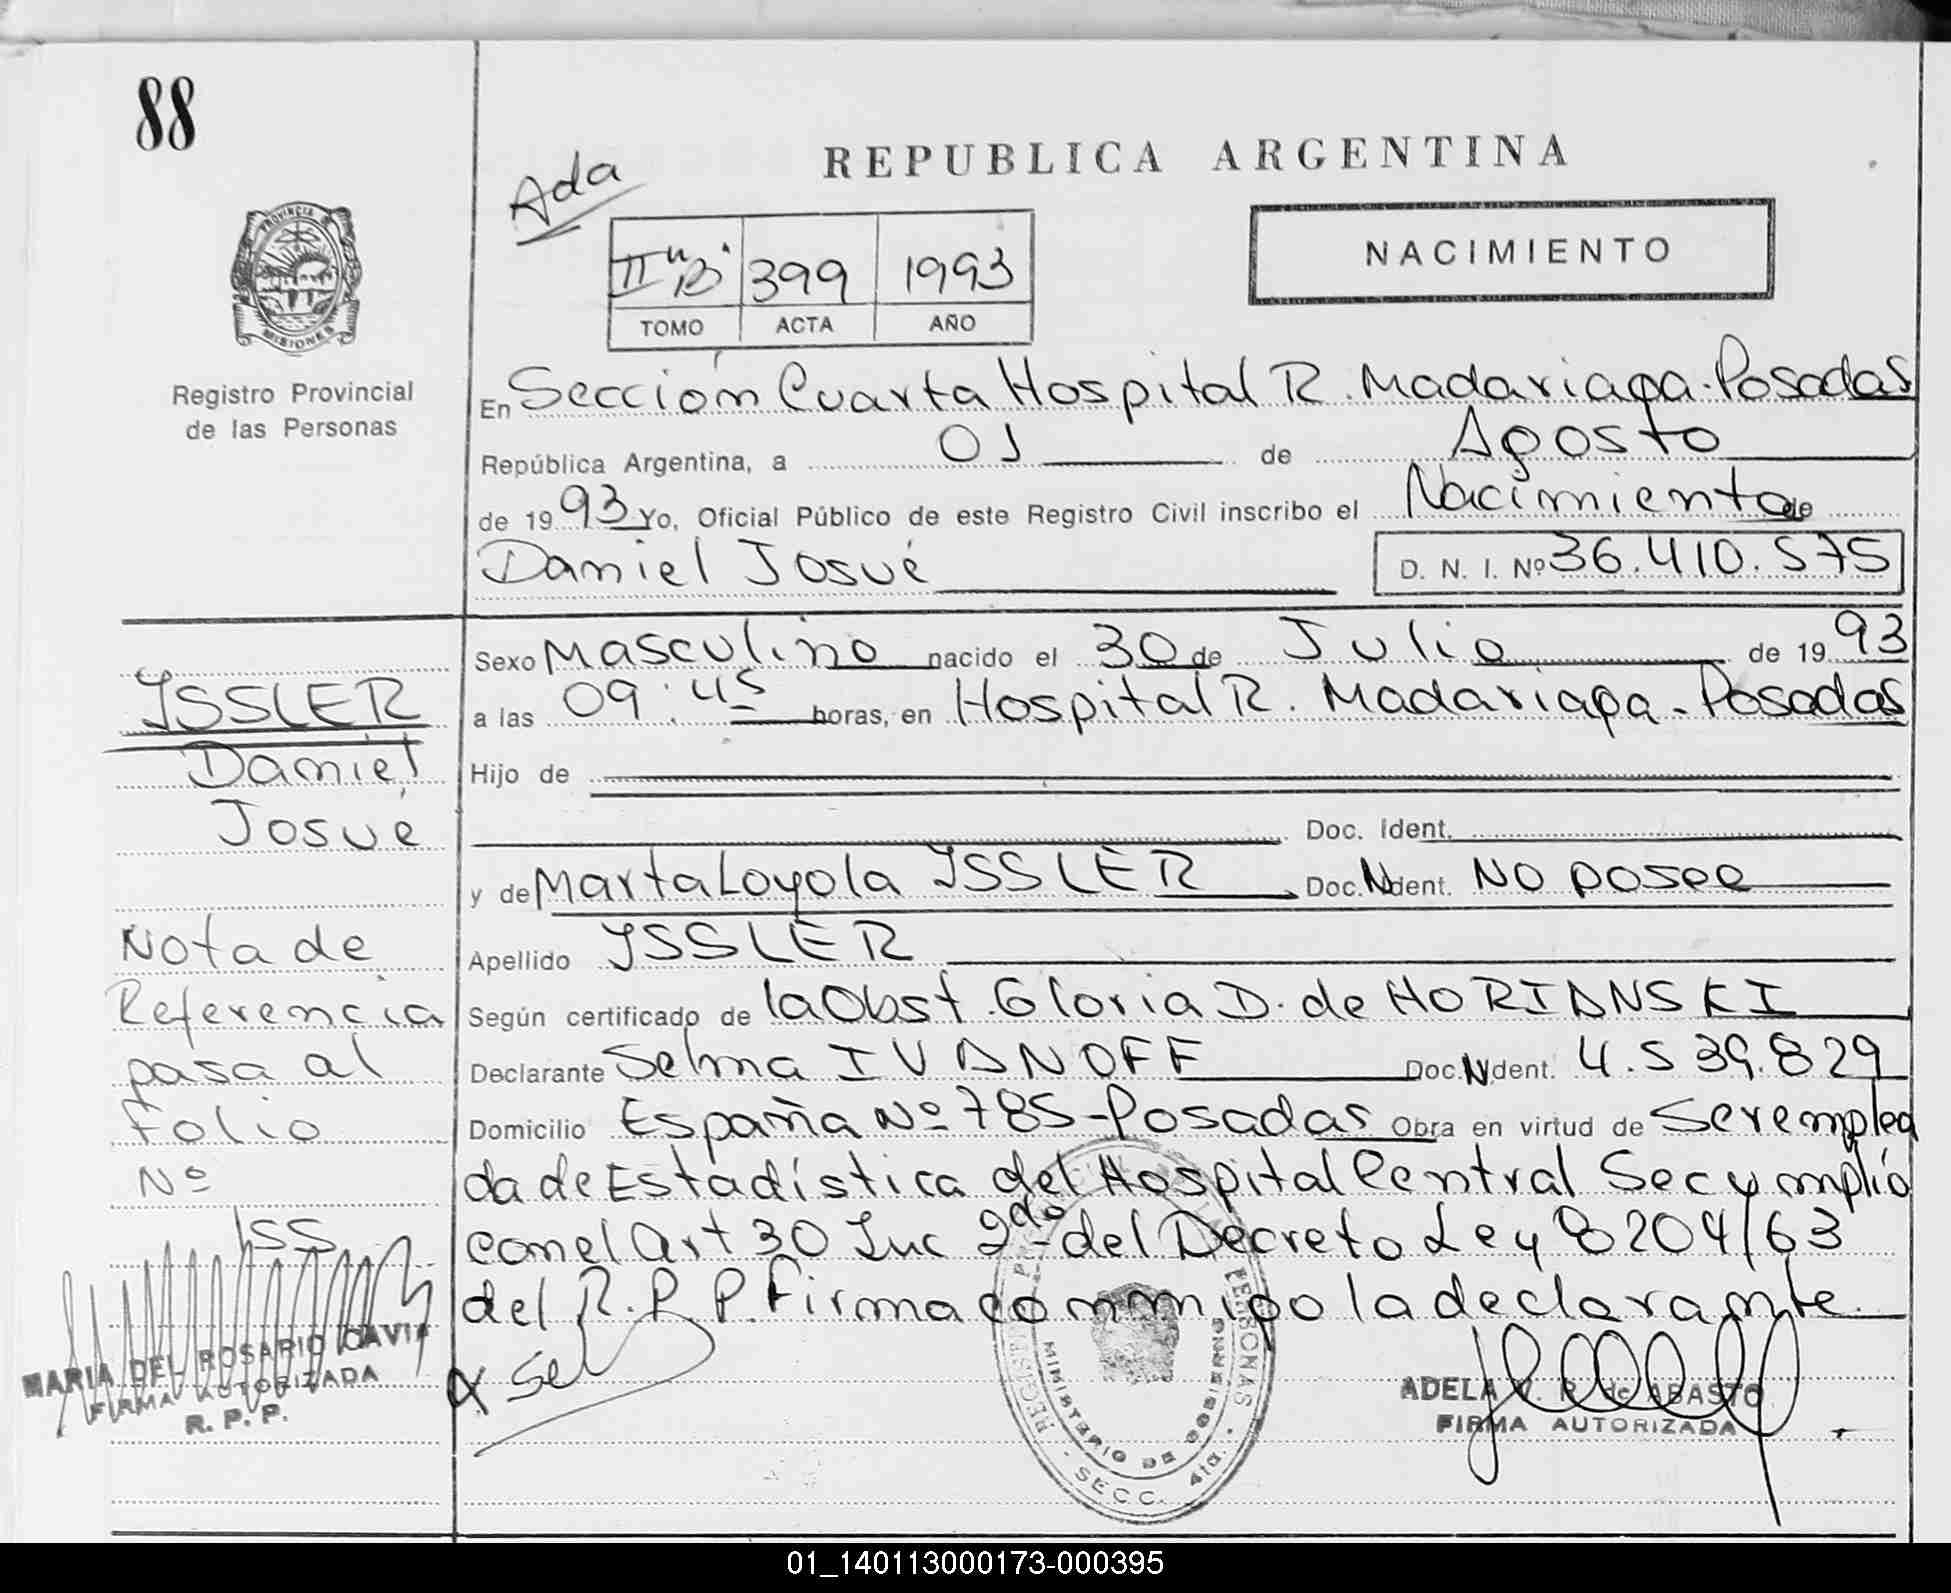 88
REPUBLICA ARGENTINA
Ada
NACIMIENTO
II "B" 399 1993
TOMO ACTA AÑO
PROVINCIA
MISIONES
Registro Provincial
de las Personas
En Sección Cuarta Hospital R. Madariaga-Posadas
República Argentina, a 01 de Agosto
de 1993 Yo, Oficial Público de este Registro Civil inscribo el Nacimiento de
Daniel Josué D. N. I. Nº 36.410.575
Sexo Masculino nacido el 30 de Julio de 1993
a las 09:45 horas, en Hospital R. Madariaga-Posadas
Hijo de
Doc. Ident.
y de Marta Loyola YSSLER Doc. Ndent. No posee
Apellido YSSLER
Según certificado de la Obst. Gloria D. de HORIANSKI
Declarante Selma IVANOFF Doc. Ndent. 4.539.829
Domicilio España Nº 785-Posadas Obra en virtud de Ser emplea
da de Estadística del Hospital Central Se cumplió
con el Art 30 Inc 2do del Decreto Ley 8204/63
del R.P.P. Firma conmigo la declarante.
YSSLER
Daniel
Josué
Nota de
Referencia
pasa al
folio
Nº
ISS
MARIA DEL ROSARIO GAVI
FIRMA AUTORIZADA
R. P. P.
MINISTERIO DE GOBIERNO
SECC. 4ta.
ADELA de ABASTO
FIRMA AUTORIZADA
01_140113000173-000395